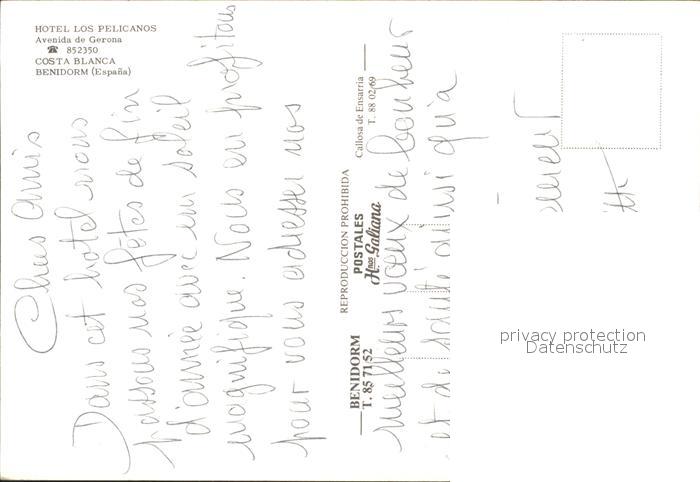 HOTEL LOS PELICANOS
Avenida de Gerona
☎ 852350
COSTA BLANCA
BENIDORM (España)
Chers amis
Dans cet hotel nous
passons nos fêtes de fin
d'année avec un soleil
magnifique. Nous en profitons
pour vous adresser nos
meilleurs vœux de bonheur
et de santé ainsi qu'à
BENIDORM
T. 85 71 52
REPRODUCCION PROHIBIDA
POSTALES
Hnos Galiana
Callosa de Ensarria
T. 88 02 69
privacy protection
Datenschutz